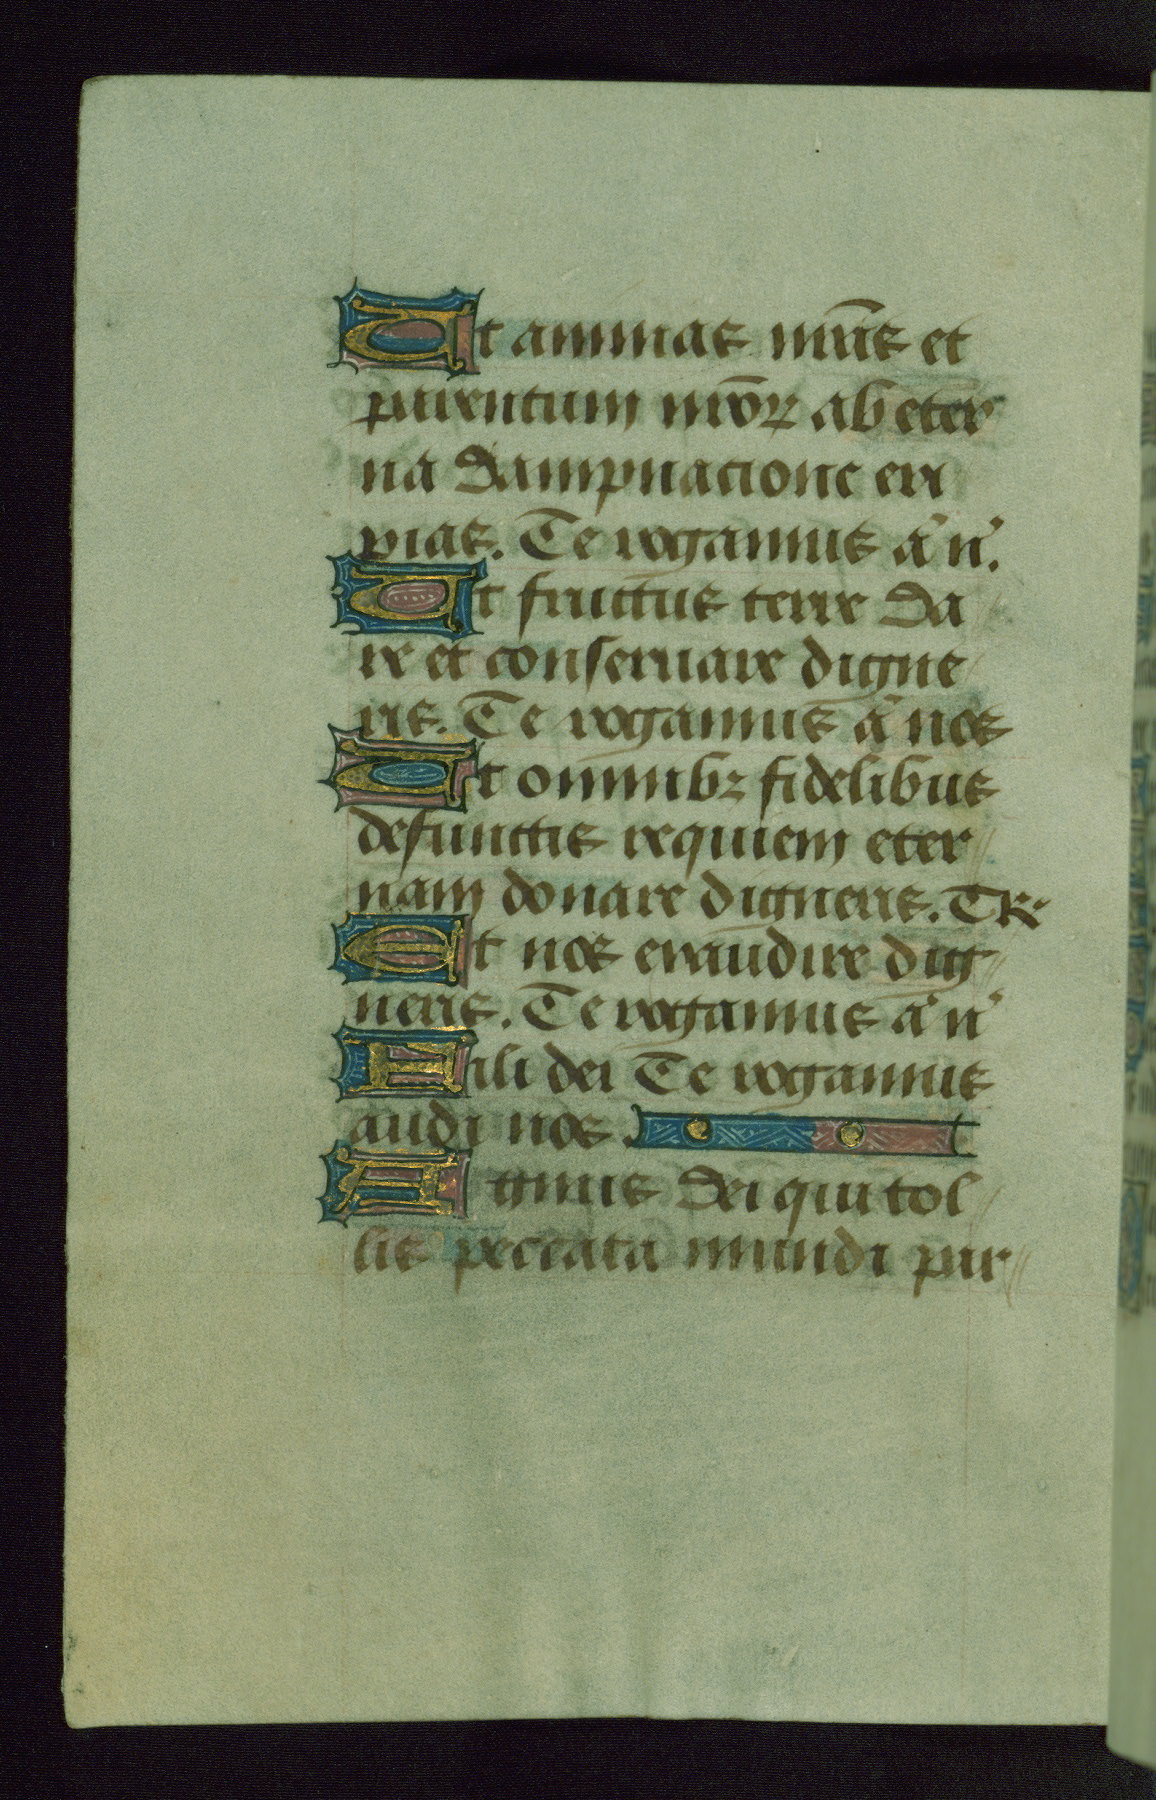 Ut animas nr̄as et
parentum nr̄oꝝ ab eter
na dampnacione eri
pias. Te rogamus a n.
Ut fructus terre da
re et conseruare digne
ris. Te rogamus a nos
Ut omnibꝫ fidelibus
defunctis requiem eter
nam donare digneris. TR
Et nos exaudire dig
neris. Te rogamus a n
Fili dei Te rogamus
audi nos.
Agnus dei qui tol
lis peccata mundi par